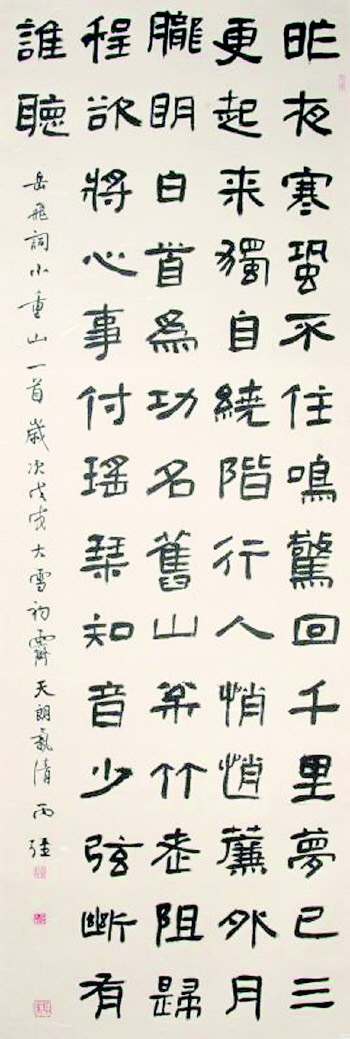 昨夜寒蛩不住鳴驚回千里夢已三
更起来獨自繞階行人悄悄簾外月
朧明白首爲功名舊山松竹老阻歸
程欲將心事付瑤琴知音少弦斷有
誰聽
岳飛詞小重山一首歲次戊戌大雪初霽天朗氣清